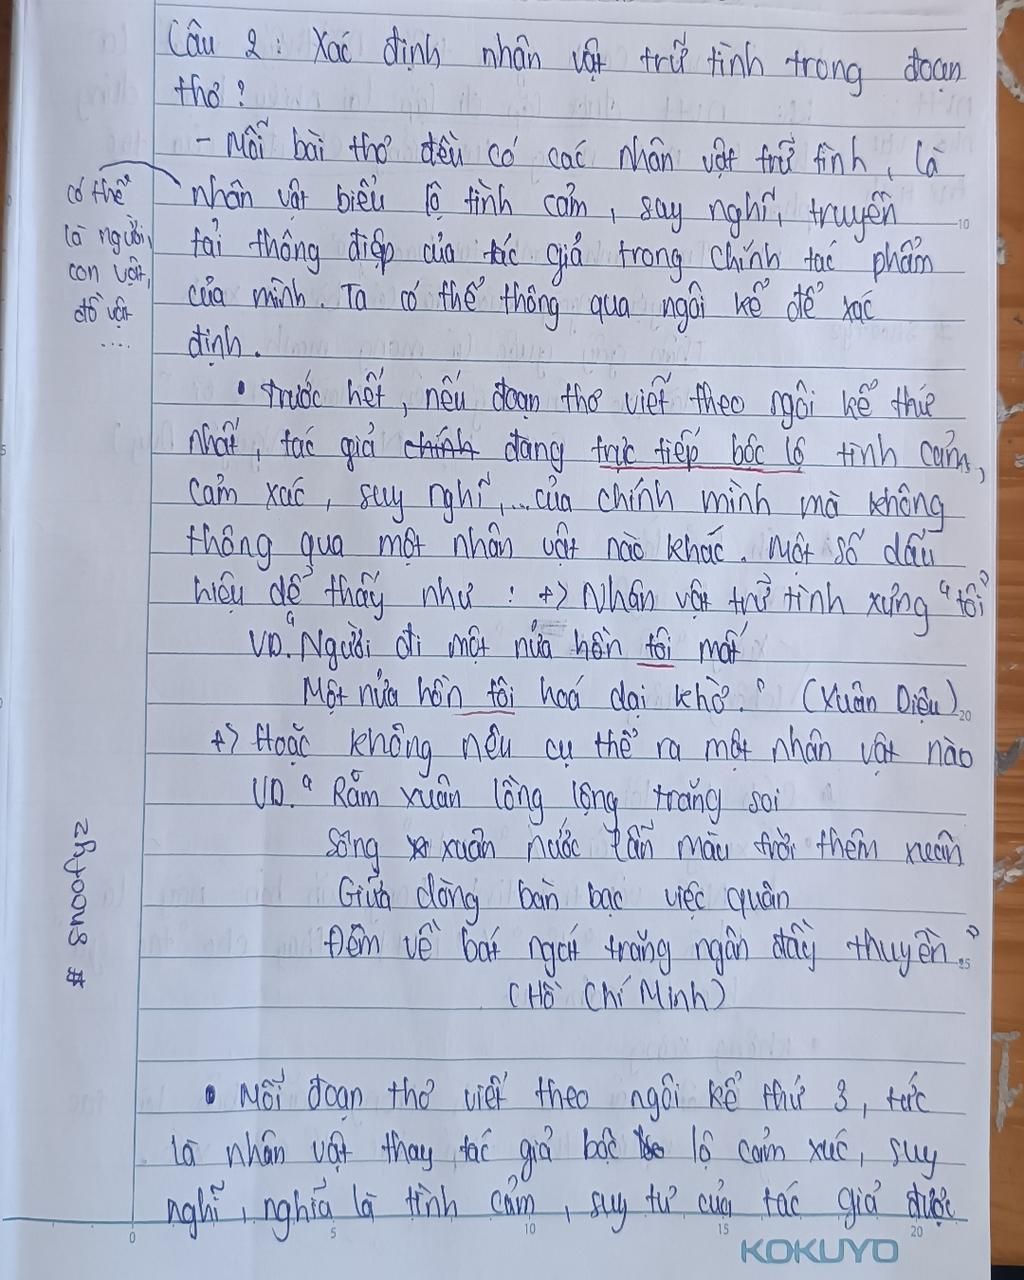 Câu 2: Xác định nhân vật trữ tình trong đoạn
thơ?
- Mỗi bài thơ đều có các nhân vật trữ tình, là
nhân vật biểu lộ tình cảm, say nghĩ, truyền
tải thông điệp của tác giả trong chính tác phẩm
của mình. Ta có thể thông qua ngôi kể để xác
định.
có thể
là người,
con vật,
đồ vật
....
• Trước hết, nếu đoạn thơ viết theo ngôi kể thứ
nhất, tác giả chính đang trực tiếp bộc lộ tình cảm,
cảm xác, suy nghĩ,... của chính mình mà không
thông qua một nhân vật nào khác. Một số dấu
hiệu dễ thấy như: +> Nhân vật trữ tình xưng "tôi"
VD. "Người đi một nửa hồn tôi mất
Một nửa hồn tôi hoá dại khờ." (Xuân Diệu)
+> Hoặc không nêu cụ thể ra một nhân vật nào
VD. " Rằm xuân lồng lộng trăng soi
Sông xuân nước lẫn màu trời thêm xuân
Giữa dòng bàn bạc việc quân
Đêm về bát ngát trăng ngân đầy thuyền."
(Hồ Chí Minh)
• Mỗi đoạn thơ viết theo ngôi kể thứ 3, tức
là nhân vật thay tác giả bộc lộ cảm xúc, suy
nghĩ, nghĩa là tình cảm, suy tư của tác giả được
# snoofyz
10
20
25
0 5 10 15 20
KOKUYO